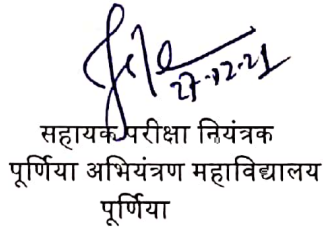 27-12-21
सहायक परीक्षा नियंत्रक
पूर्णिया अभियंत्रण महाविद्यालय
पूर्णिया